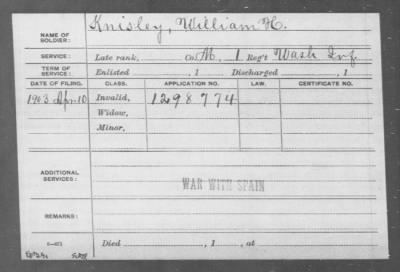 NAME OF SOLDIER: Knisley, William H.
SERVICE: Late rank, Co. M. 1 Reg't Wash Inf.
TERM OF SERVICE: Enlisted , 1 Discharged , 1
DATE OF FILING. CLASS. APPLICATION NO. LAW. CERTIFICATE NO.
1903 Apr. 10 Invalid, 1298774
Widow,
Minor,
ADDITIONAL SERVICES:
WAR WITH SPAIN
REMARKS:
Died , 1 , at